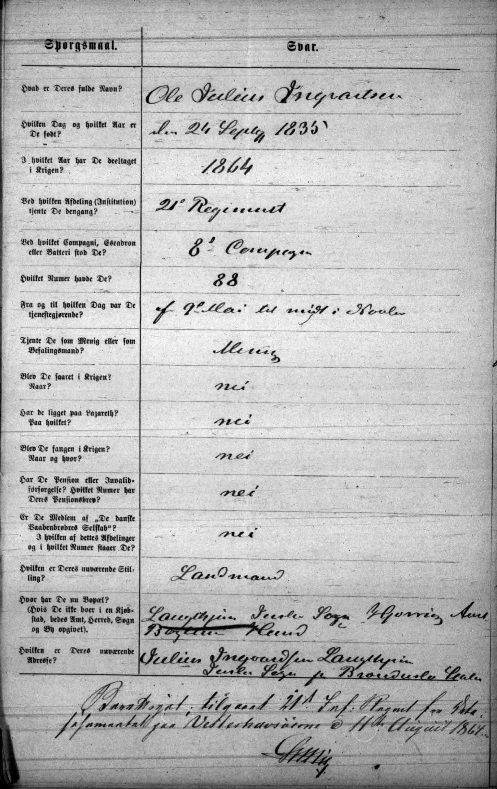 Spørgsmaal. Svar.
Hvad er Deres fulde Navn? Ole Julius Ingvardsen
Hvilken Dag og hvilket Aar er
De født? den 24 Septbr 1835
I hvilket Aar har De deeltaget
i Krigen? 1864
Ved hvilken Afdeling (Institution)
tjente De dengang? 21de Regiment
Ved hvilket Compagni, Escadron
eller Batteri stod De? 8de Compagni
Hvilket Numer havde De? 88
Fra og til hvilken Dag var De
tjenestegjørende? af 9de Mai til midt i Novbr
Tjente De som Menig eller som
Befalingsmand? Menig
Blev De saaret i Krigen?
Naar? nei
Har de ligget paa Lazareth?
Paa hvilket? nei
Blev De fangen i Krigen?
Naar og hvor? nei
Har De Pension eller Invalid-
forsørgelse? Hvilket Numer har
Deres Pensionsbrev? nei
Er De Medlem af „De danske
Vaabenbrødres Selskab“?
I hvilken af dettes Afdelinger
og i hvilket Numer staaer De? nei
Hvilken er Deres nuværende Stil-
ling? Landmand
Hvor har De nu Bopæl?
(Hvis De ikke boer i en Kjøb-
stad, bedes Amt, Herred, Sogn
og By opgivet). Sogn Hjørring Amt
Herred
Hvilken er Deres nuværende
Adresse? Julius Ingvardsen
Sogn pr Brønderslev
tilgaaet 21st Inf. Regmt fra
paa 11te August 1864.